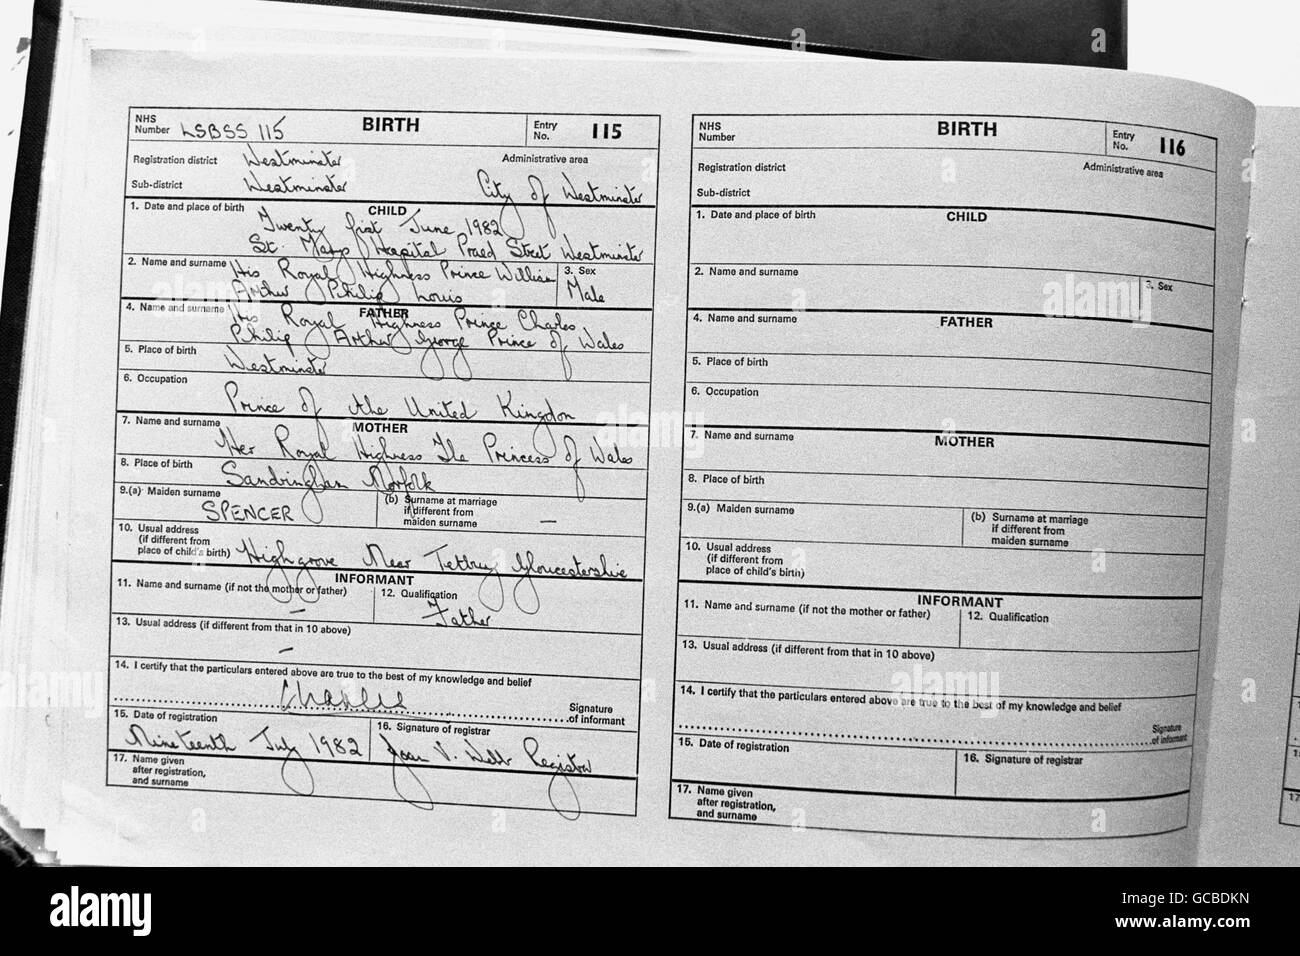 NHS Number LSBSS 115 BIRTH Entry No. 115
Registration district Westminster Administrative area
Sub-district Westminster City of Westminster
1. Date and place of birth CHILD
Twenty first June 1982
St. Mary's Hospital Praed Street Westminster
2. Name and surname His Royal Highness Prince William
Arthur Philip Louis
3. Sex
Male
4. Name and surname FATHER
His Royal Highness Prince Charles
Philip Arthur George Prince of Wales
5. Place of birth Westminster
6. Occupation
Prince of the United Kingdom
7. Name and surname MOTHER
Her Royal Highness The Princess of Wales
8. Place of birth Sandringham Norfolk
9.(a) Maiden surname
SPENCER
(b) Surname at marriage
if different from
maiden surname —
10. Usual address
(if different from
place of child's birth) Highgrove Near Tetbury Gloucestershire
INFORMANT
11. Name and surname (if not the mother or father)
—
12. Qualification
Father
13. Usual address (if different from that in 10 above)
—
14. I certify that the particulars entered above are true to the best of my knowledge and belief
Charles
Signature
of informant
15. Date of registration
Nineteenth July 1982
16. Signature of registrar
Joan V. Webb Registrar
17. Name given
after registration,
and surname
NHS
Number BIRTH Entry
No. 116
Registration district Administrative area
Sub-district
1. Date and place of birth CHILD
2. Name and surname 3. Sex
4. Name and surname FATHER
5. Place of birth
6. Occupation
7. Name and surname MOTHER
8. Place of birth
9.(a) Maiden surname
(b) Surname at marriage
if different from
maiden surname
10. Usual address
(if different from
place of child's birth)
INFORMANT
11. Name and surname (if not the mother or father) 12. Qualification
13. Usual address (if different from that in 10 above)
14. I certify that the particulars entered above are true to the best of my knowledge and belief
Signature
of informant
15. Date of registration 16. Signature of registrar
17. Name given
after registration,
and surname
alamy
alamy
Image ID: GCBDKN
www.alamy.com